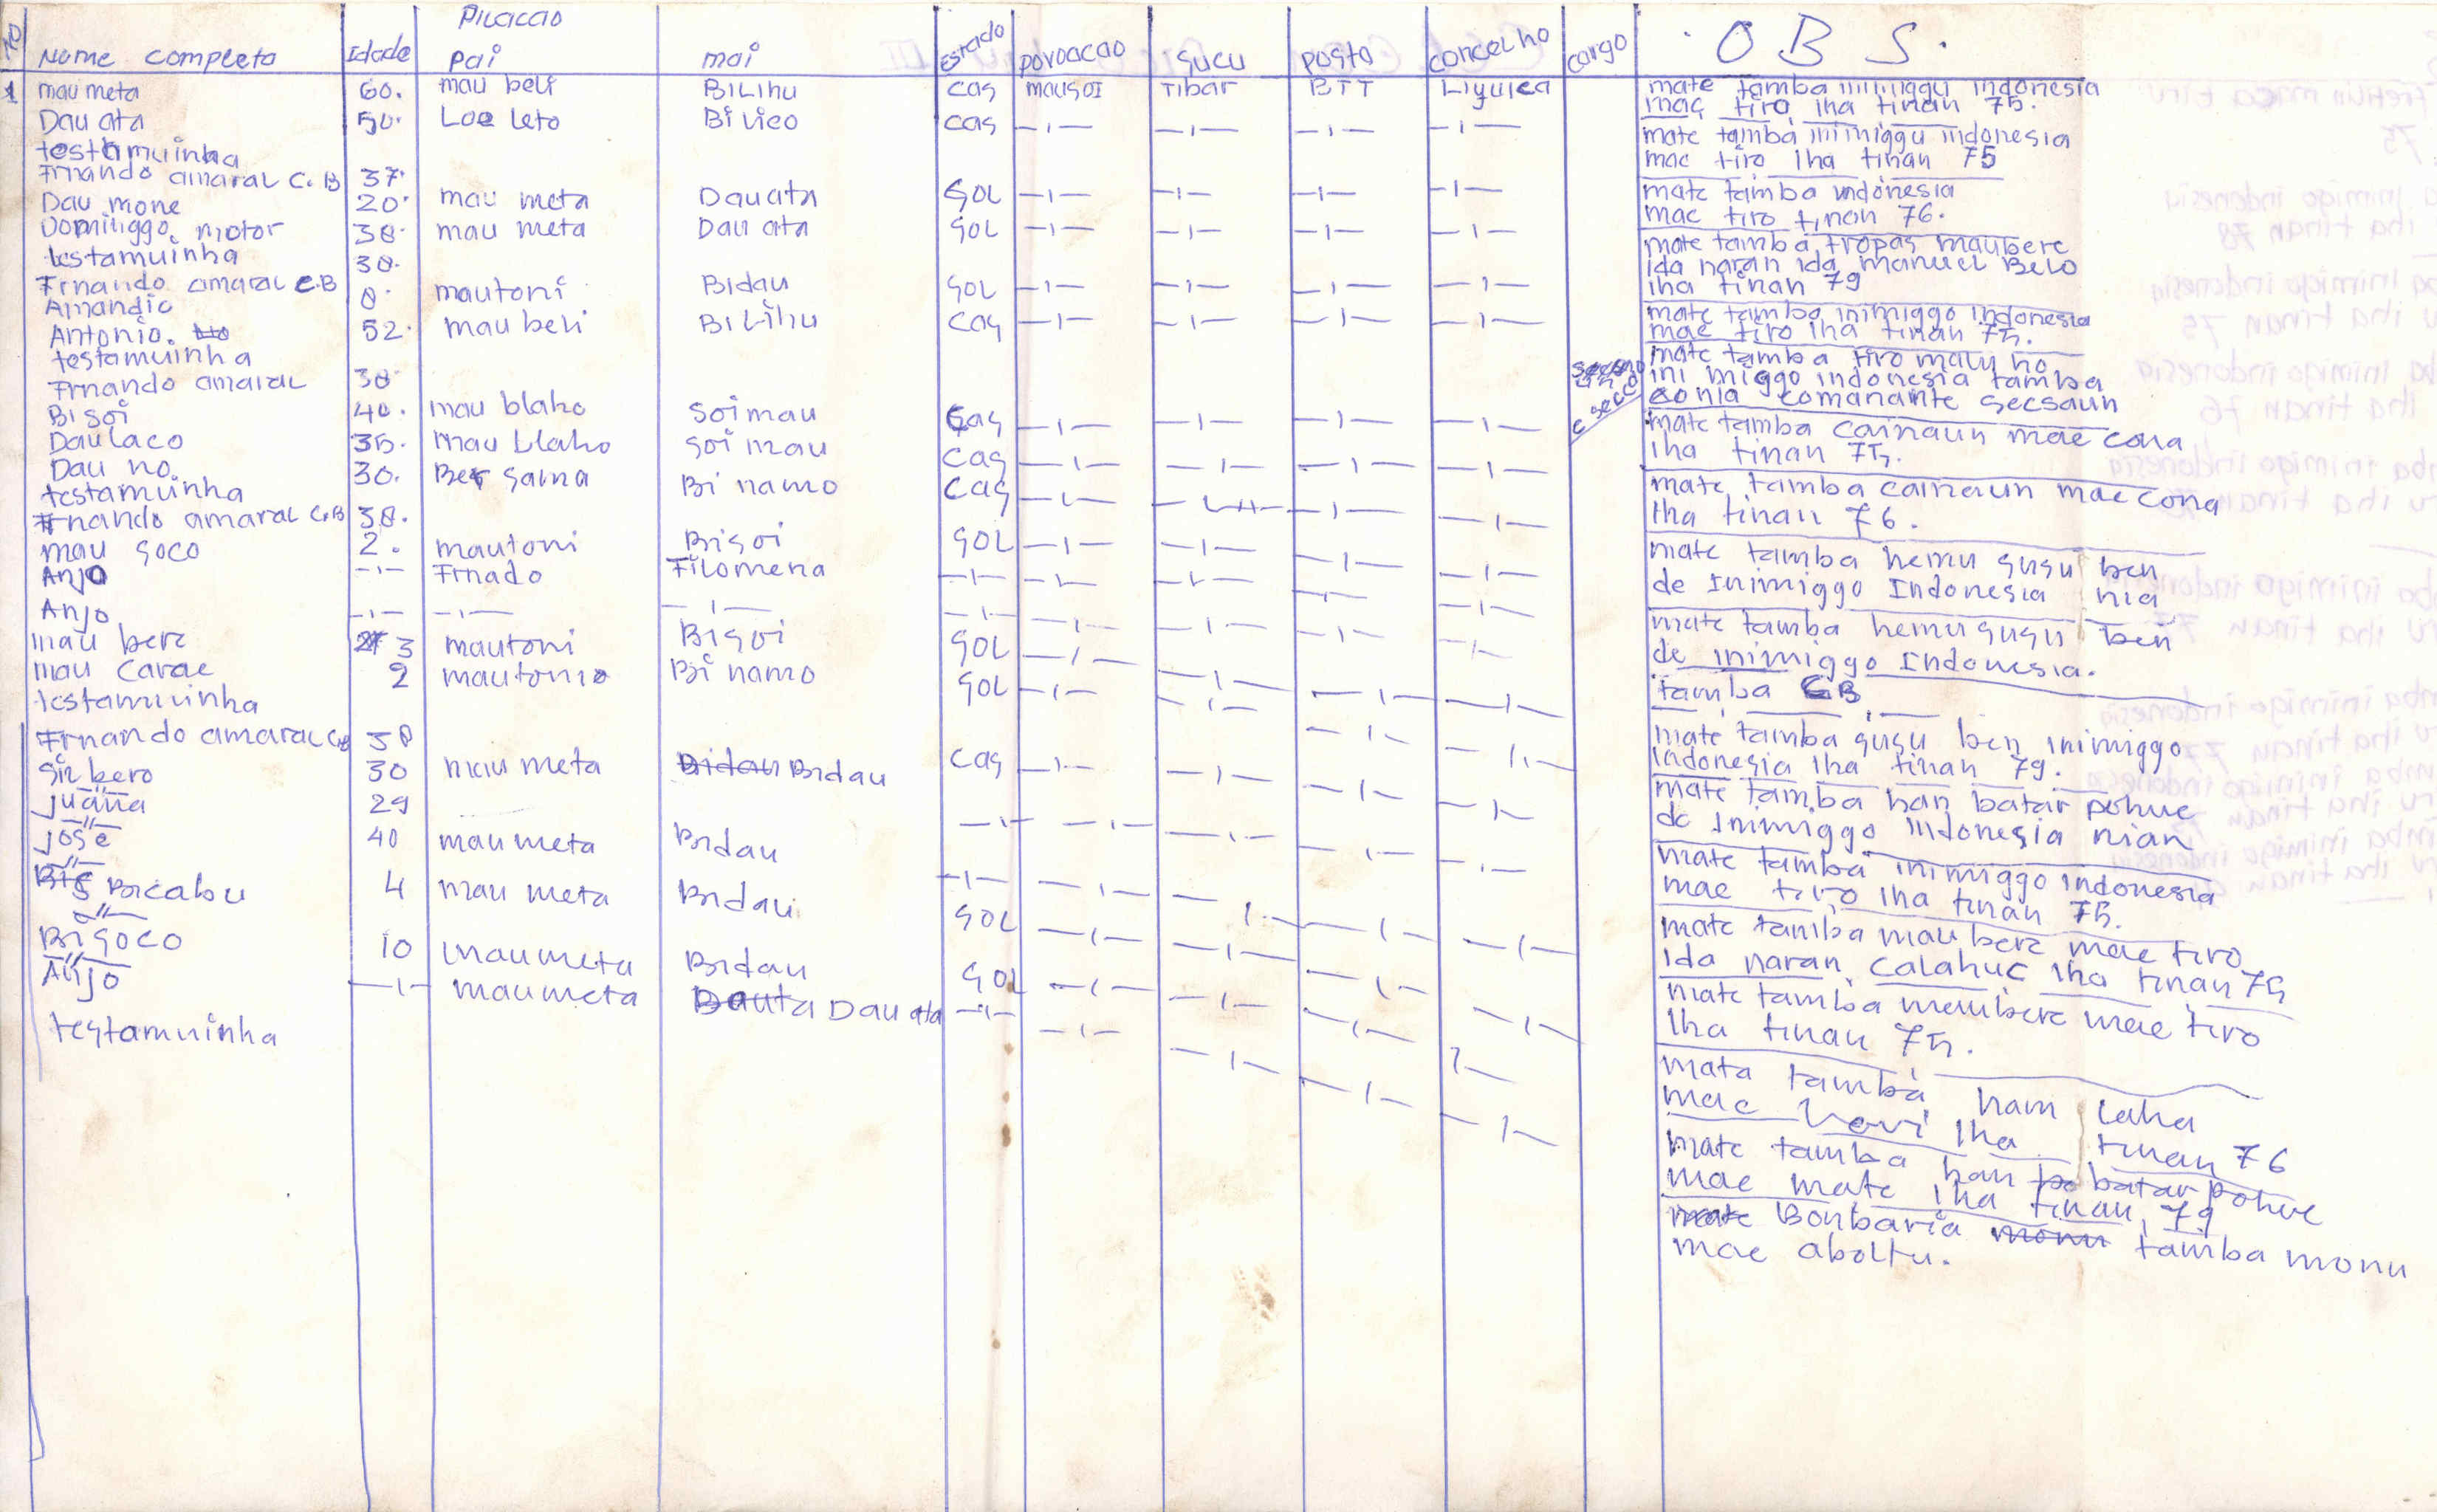 No
Nome completo Idade Pilaccao Pai mai Estado povoacao sucu posto concelho cargo O B S.
1 mau meta 60. mau beli BiLihu cas mausoi Tibar BTT Liquica mate tamba inimiggu indonesia
mac tiro iha tinan 75.
Dau ata 50. Loe leto Bilico cas -ı- -ı- -ı- -ı- mate tamba inimiggu indonesia
mac tiro iha tinan 75
testamuinha
Frnando amaral C.B 37.
Dau mone 20. mau meta Dau ata SOL -ı- -ı- -ı- -ı- mate tamba indonesia
mac tiro tinan 76.
Domiliggo motor 38. mau meta Dau ata SOL -ı- -ı- -ı- -ı- mate tamba tropas maubere
ida naran ida manuel Belo
iha tinan 79
testamuinha 38.
Frnando amaral C.B
Amandio 8. mautoni Bidau SOL -ı- -ı- -ı- -ı- mate tamba inimiggo indonesia
mae tiro iha tinan 75.
Antonio. 52. mau beli BiLihu Cas -ı- -ı- -ı- -ı- mate tamba tiro malu ho
ini miggo indonesia tamba
sonia comanante secsaun
testamuinha
Frnando amaral 38
Bi soi 40. mau blaho Soi mau Cas -ı- -ı- -ı- -ı- mate tamba cainaun mae cona
iha tinan 75.
Daulaco 35. mau blaho soi mau Cas -ı- -ı- -ı- -ı- mate tamba cainaun mae cona
iha tinan 76.
Dau no 30. Ber saina Bi namo Cas -ı- -ı- -ı- -ı- mate tamba hemu susu ben
de Inimiggo Indonesia nia
testamuinha
Frnando amaral C.B 38.
mau soco 2. mautoni Bisoi SOL -ı- -ı- -ı- -ı- mate tamba hemu susu ben
de inimiggo Indonesia.
Anjo -ı- Frnado Filomena -ı- -ı- -ı- -ı- -ı- tamba CB
Anjo -ı- -ı- -ı- -ı- -ı- -ı- -ı- -ı- -ı-
mau bere 3 mautoni Bisoi SOL -ı- -ı- -ı- -ı- mate tamba susu ben inimiggo
Indonesia iha tinan 79.
mau carae 2 mautonio Bi namo SOL -ı- -ı- -ı- -ı- mate tamba han batar pohue
de Inimiggo Indonesia nian
testamuinha
Frnando amaral C.B 38
Siribero 30 mau meta Bidau Bidau Cas -ı- -ı- -ı- -ı- mate tamba inimiggo indonesia
mae tiro iha tinan 75.
juana 29 -ı- -ı- -ı- -ı- -ı- mate tamba maubere mae tiro
ida naran calahuc iha tinan 75
jose 40 mau meta Bidau -ı- -ı- -ı- -ı- -ı- mate tamba maubere mae tiro
iha tinan 75.
Bicabu 4 mau meta Bidau SOL -ı- -ı- -ı- -ı- mata tamba ham laha
mae iha tinan 76
Bisoco 10 maumeta Bidau SOL -ı- -ı- -ı- -ı- mate tamba han batar pohue
mae mate iha tinan 79
Anjo -ı- maumeta Dauta Dau ata -ı- -ı- -ı- -ı- -ı- mate Bonbaria monu tamba monu
mae aboltu.
testamuinha